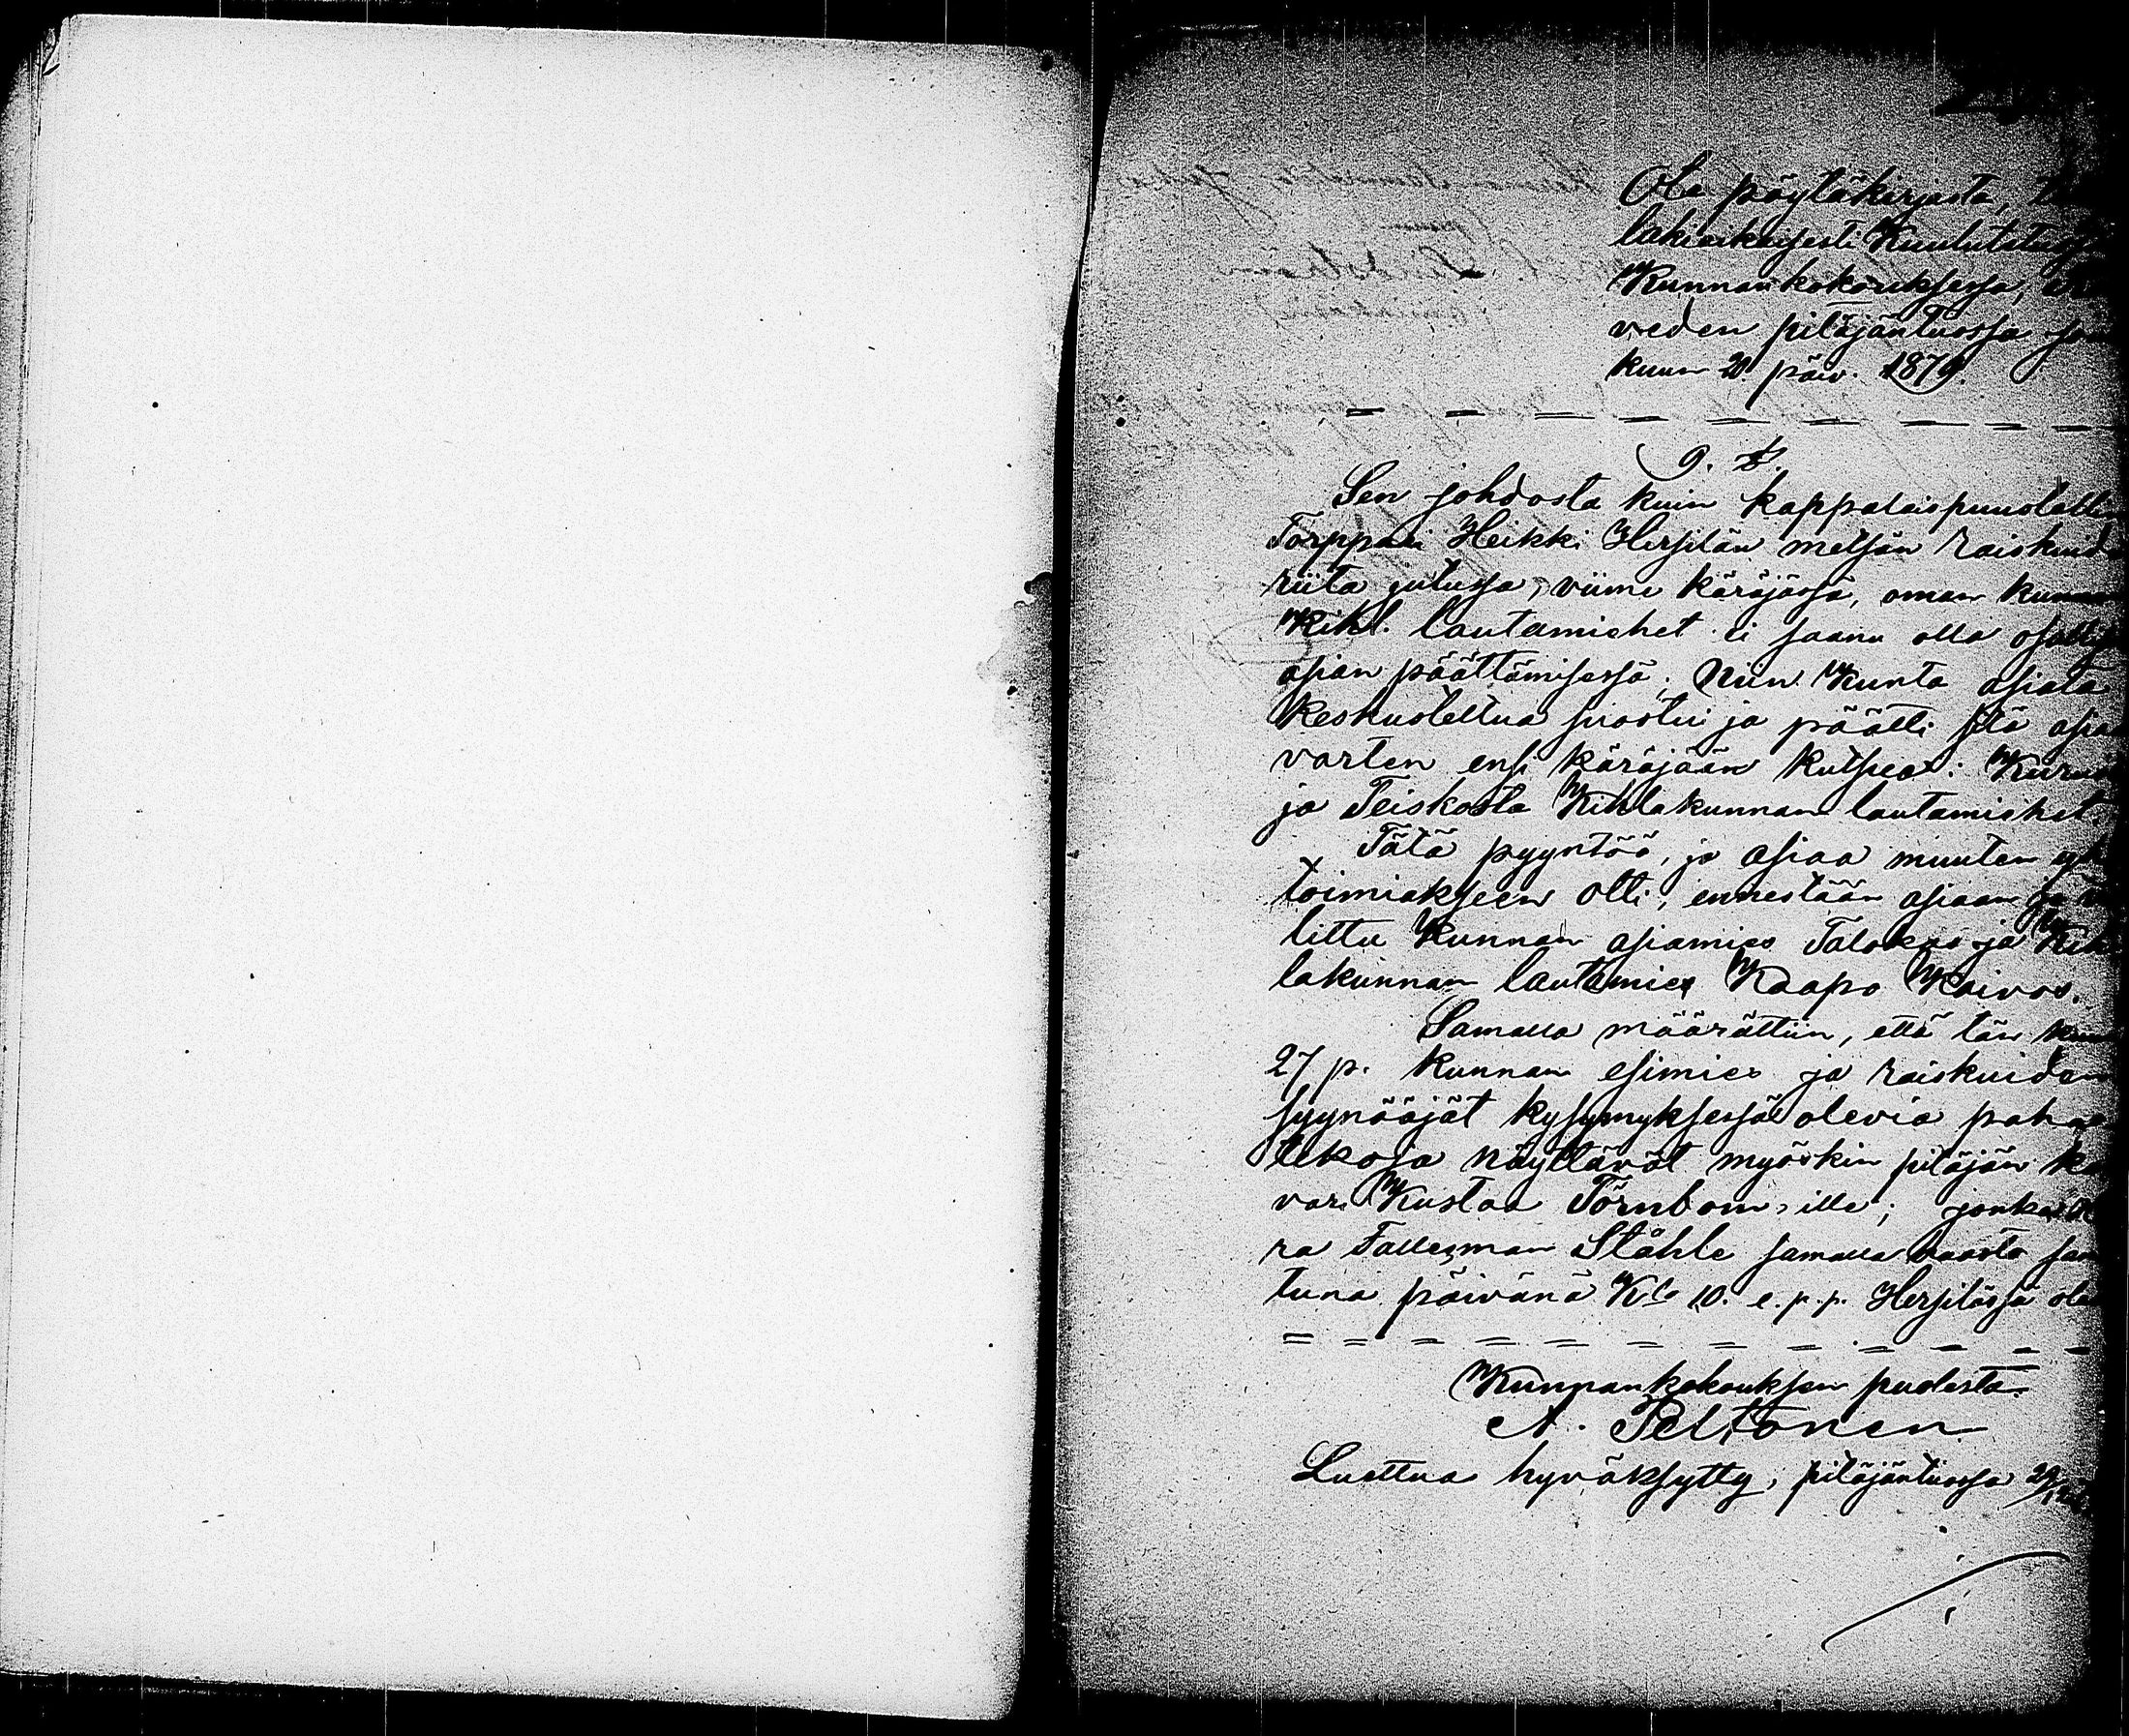 Ote pöytäkirjasta,
lakiaikaisesti Kuulutetussa
Kunnankokouksessa,
veden pitäjäntuossa
kuun 20 päiv. 1879.
9. §.
Sen johdosta kuin kappalaispuustallin
Torppari Heikki Hersilän metsän raiskuu
riita jutussa, viime käräjässä, oman kunnan
Kihl. lautamiehet ei saanu olla osallis
asian päättämisessä; Niin Kunta asiata
keskusteltua suostui ja päätti sitä asiaa
varten ensi käräjään kutsua: Kuru
ja Teiskosta Kihlakunnan lautamiehet.
Tätä pyyntöö, ja asiaa muuten
toimiakseen otti, ennestään asiaan
littu Kunnan asiamies Talokas ja Kih
lakunnan lautamies Kaapo Kaivos.
Samalla määrättiin, että tän kuun
27 p. kunnan esimies ja raiskuiden
syynääjät kysymyksessä olevia paha
tekoja näyttävät myöskin pitäjän
vari Kustaa Törnbom, ille; jonka
ra Fallesman Ståhle samalla haasta
tuna päivänä Klo 10. e.p.p. Hersilässä
Kunnankokouksen puolesta.
A. Peltonen
Luettua hyväksytty, pitäjäntuossa